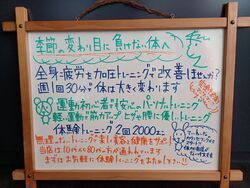 季節の変わり目に負けない体へ
全身疲労を加圧トレーニングで改善しませんか?
週1回30分で体は大きく変わります
運動初心者も安心のパーソナルトレーニング
軽い運動で筋力アップ ヒザや腰に優しいトレーニング
体験トレーニング 2回2000円
無理のないトレーニングで楽しく美容と健康を手に!
当店は10代から80代の方が通われています
まずはお気軽に体験トレーニングをおためし下さい!!